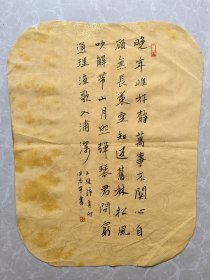 晚年唯好靜萬事不關心自
顧無長策空知返舊林松風
吹解帶山月照彈琴君問窮
通理漁歌入浦深
王維詩